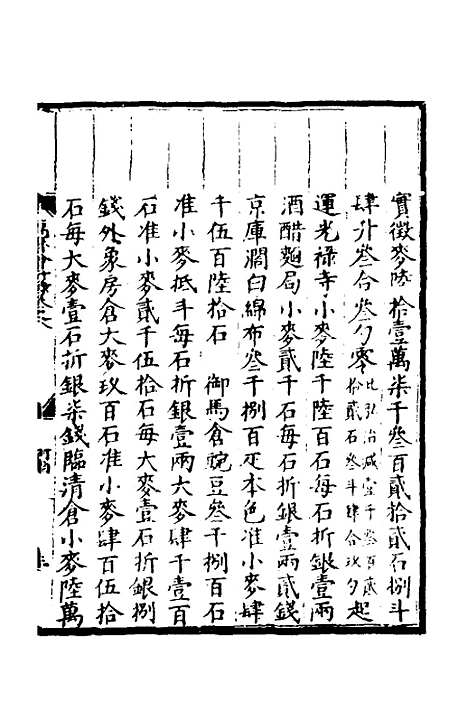 實徵麥陸拾壹萬柒千叁百貳拾貳石捌斗
肆升叁合叁勺零比弘治減壹千叁百貳拾貳石叁斗肆合玖勺起
運光祿寺小麥陸千陸百石每石折銀壹兩
酒醋麵局小麥貳千石每石折銀壹兩貳錢
京庫濶白綿布叁千捌百疋本色准小麥肆
千伍百陸拾石　御馬倉豌豆叁千捌百石
准小麥抵斗每石折銀壹兩大麥肆千壹百
石准小麥貳千伍拾石每大麥壹石折銀捌
錢外象房倉大麥玖百石准小麥肆百伍拾
石每大麥壹石折銀柒錢臨清倉小麥陸萬